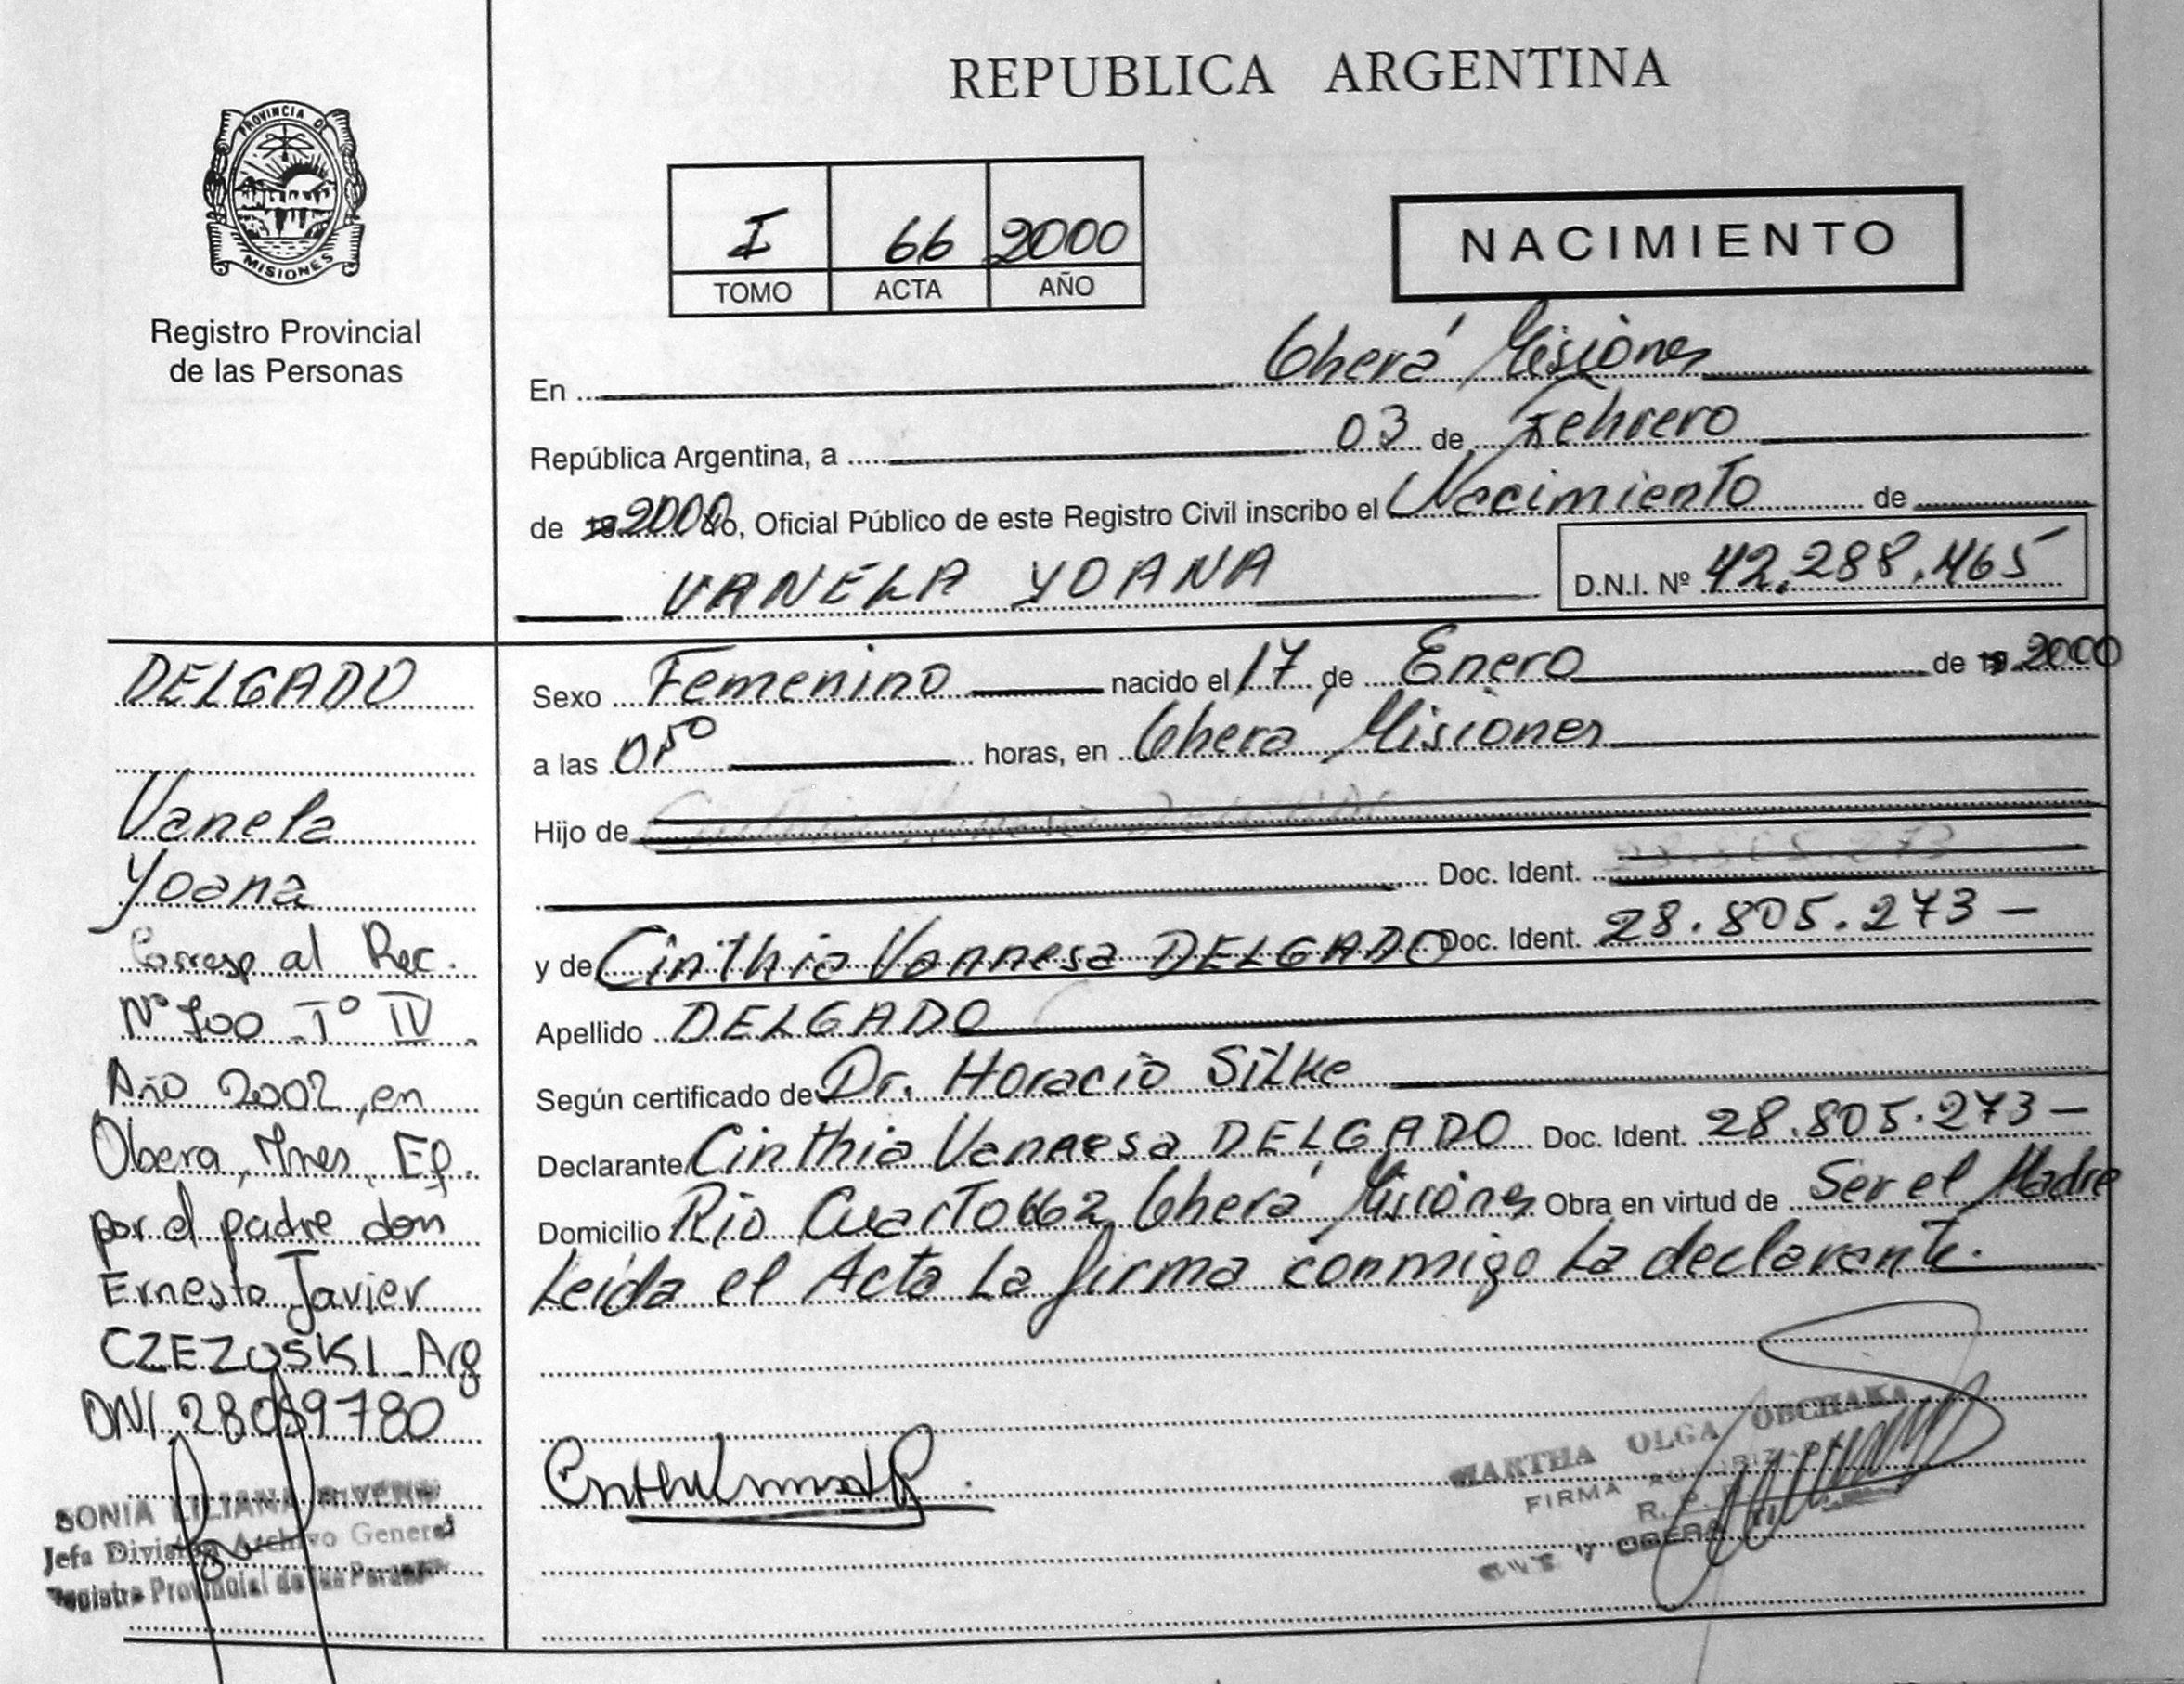 PROVINCIA DE
MISIONES
Registro Provincial
de las Personas
REPUBLICA ARGENTINA
I 66 2000
TOMO ACTA AÑO
NACIMIENTO
En Oberá Misiones
República Argentina, a 03 de Febrero
de 2000 Yo, Oficial Público de este Registro Civil inscribo el Nacimiento de
VANELA YOANA D.N.I. Nº 42.288.465
Sexo Femenino nacido el 17 de Enero de 19 2000
a las horas, en Oberá Misiones
Hijo de
Doc. Ident.
y de Cinthia Vannesa DELGADO Doc. Ident. 28.805.273 –
Apellido DELGADO
Según certificado de Dr. Horacio Silke
Declarante Cinthia Vannesa DELGADO Doc. Ident. 28.805.273 –
Domicilio Rio Cuarto 662 Oberá Misiones Obra en virtud de Ser el Madre
Leida el Acta La firma conmigo La declarante.
DELGADO
Vanela
Yoana
Corresp al Rec.
Nº 700 Tº IV
Año 2002, en
Obera, Mnes, Ef.
por el padre don
Ernesto Javier
CZEZOSKI Arg
DNI 28059780
SONIA LILIANA
Jefa División Archivo General
Registro Provincial de las Personas
MARTHA OLGA OBCHAKA
FIRMA AUTORIZADA
R. P.
OBERA